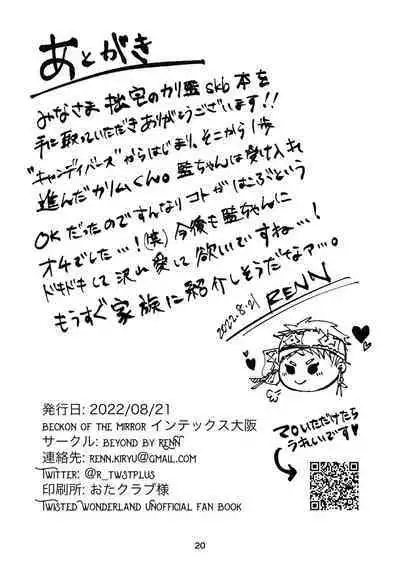 あとがき
みなさま 拙宅のカリ監skb本を
手に取っていただきありがとうございます!!
"キャンディバース"からはじまり、そこから1歩
進んだカリムくん。監ちゃんは受け入れ
OKだったのですんなりコトがはこぶという
オチでした…!(笑)今後も監ちゃんに
ドキドキして沢山愛して欲しいですね…!
もうすぐ家族に紹介しそうだなァ…。
2022.8.21 RENN
マロいただけたら
うれしいです
発行日: 2022/08/21
Beckon of the Mirror インテックス大阪
サークル: Beyond by Renn
連絡先: renn.kiryu@gmail.com
Twitter: @r_twstplus
印刷所: おたクラブ様
Twisted Wonderland Unofficial Fan Book
20